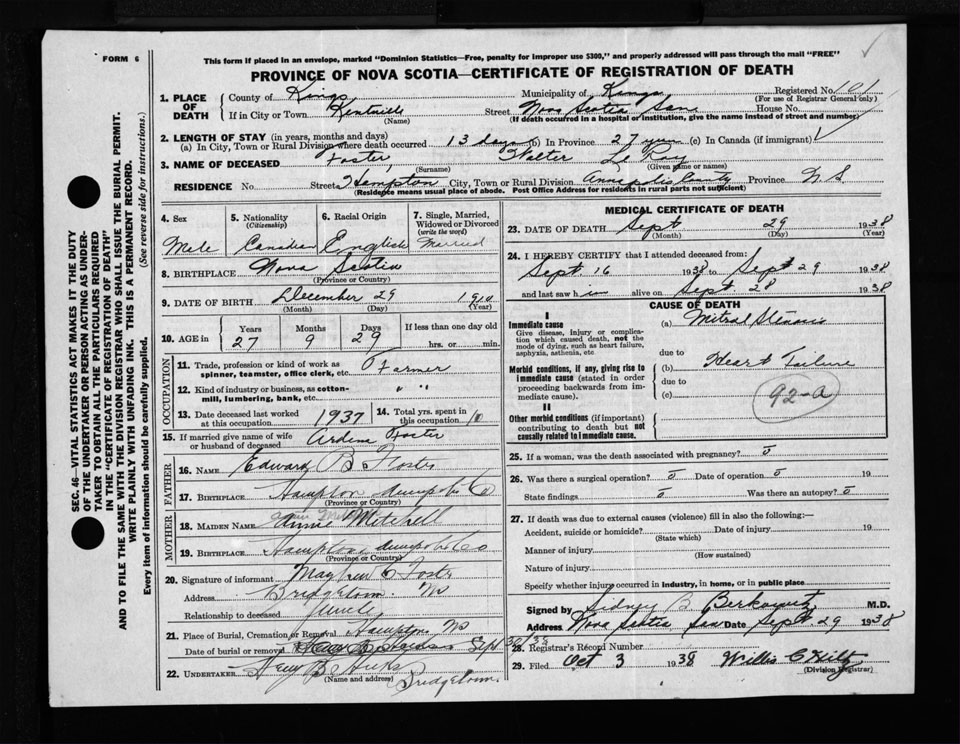 FORM 6
This form if placed in an envelope, marked "Dominion Statistics—Free, penalty for improper use $300," and properly addressed will pass through the mail "FREE"
PROVINCE OF NOVA SCOTIA—CERTIFICATE OF REGISTRATION OF DEATH
SEC. 46—VITAL STATISTICS ACT MAKES IT THE DUTY
OF THE UNDERTAKER OR PERSON ACTING AS UNDER-
TAKER TO OBTAIN ALL THE PARTICULARS REQUIRED
IN THE "CERTIFICATE OF REGISTRATION OF DEATH"
AND TO FILE THE SAME WITH THE DIVISION REGISTRAR WHO SHALL ISSUE THE BURIAL PERMIT.
WRITE PLAINLY WITH UNFADING INK. THIS IS A PERMANENT RECORD.
Every item of information should be carefully supplied. (See reverse side for instructions.)
1. PLACE OF DEATH
County of Kings Municipality of Kings Registered No. 101
(For use of Registrar General only)
If in City or Town Kentville Street Nova Scotia Sana House No.
(Name) (If death occurred in a hospital or institution, give the name instead of street and number)
2. LENGTH OF STAY (in years, months and days)
(a) In City, Town or Rural Division where death occurred 13 days (b) In Province 27 years (c) In Canada (if immigrant)
3. NAME OF DECEASED Foster, Walter Le Roy
(Surname) (Given name or names)
RESIDENCE No. Street Hampton City, Town or Rural Division Annapolis County Province N.S.
(Residence means usual place of abode. Post Office Address for residents in rural parts not sufficient)
4. Sex Male
5. Nationality (Citizenship) Canadian
6. Racial Origin English
7. Single, Married, Widowed or Divorced (write the word) Married
8. BIRTHPLACE Nova Scotia
(Province or Country)
9. DATE OF BIRTH December 29 1910
(Month) (Day) (Year)
10. AGE in Years 27 Months 9 Days 29 If less than one day old hrs. or min.
OCCUPATION
11. Trade, profession or kind of work as spinner, teamster, office clerk, etc. Farmer
12. Kind of industry or business, as cotton-mill, lumbering, bank, etc. " "
13. Date deceased last worked at this occupation 1937
14. Total yrs. spent in this occupation 10
15. If married give name of wife or husband of deceased Foster
FATHER
16. NAME Edward B Foster
17. BIRTHPLACE Hampton Annapolis Co
(Province or Country)
MOTHER
18. MAIDEN NAME Annie Mitchell
19. BIRTHPLACE Hampton Annapolis Co
(Province or Country)
20. Signature of informant Foster
Address Bridgetown NS
Relationship to deceased Uncle
21. Place of Burial, Cremation or Removal Hampton NS
Date of burial or removal Sept 30/38
22. UNDERTAKER Hicks
(Name and address) Bridgetown
MEDICAL CERTIFICATE OF DEATH
23. DATE OF DEATH Sept 29 1938
(Month) (Day) (Year)
24. I HEREBY CERTIFY that I attended deceased from:
Sept 16 1938 to Sept 29 1938
and last saw him alive on Sept 28 1938
CAUSE OF DEATH
I
Immediate cause
Give disease, injury or complication which caused death, not the mode of dying, such as heart failure, asphyxia, asthenia, etc
(a) Mitral Stenosis
due to
Morbid conditions, if any, giving rise to immediate cause (stated in order proceeding backwards from immediate cause).
(b) Heart Failure
due to
(c)
92-A
II
Other morbid conditions (if important) contributing to death but not causally related to immediate cause.
25. If a woman, was the death associated with pregnancy? 0
26. Was there a surgical operation? 0 Date of operation 0 19
State findings 0 Was there an autopsy? 0
27. If death was due to external causes (violence) fill in also the following:—
Accident, suicide or homicide? Date of injury 19
(State which)
Manner of injury
(How sustained)
Nature of injury
Specify whether injury occurred in industry, in home, or in public place
Signed by Sidney B Berkowitz M.D.
Address Nova Scotia San Date Sept 29 1938
28. Registrar's Record Number
29. Filed Oct 3 1938 Willis C Hiltz
(Division Registrar)